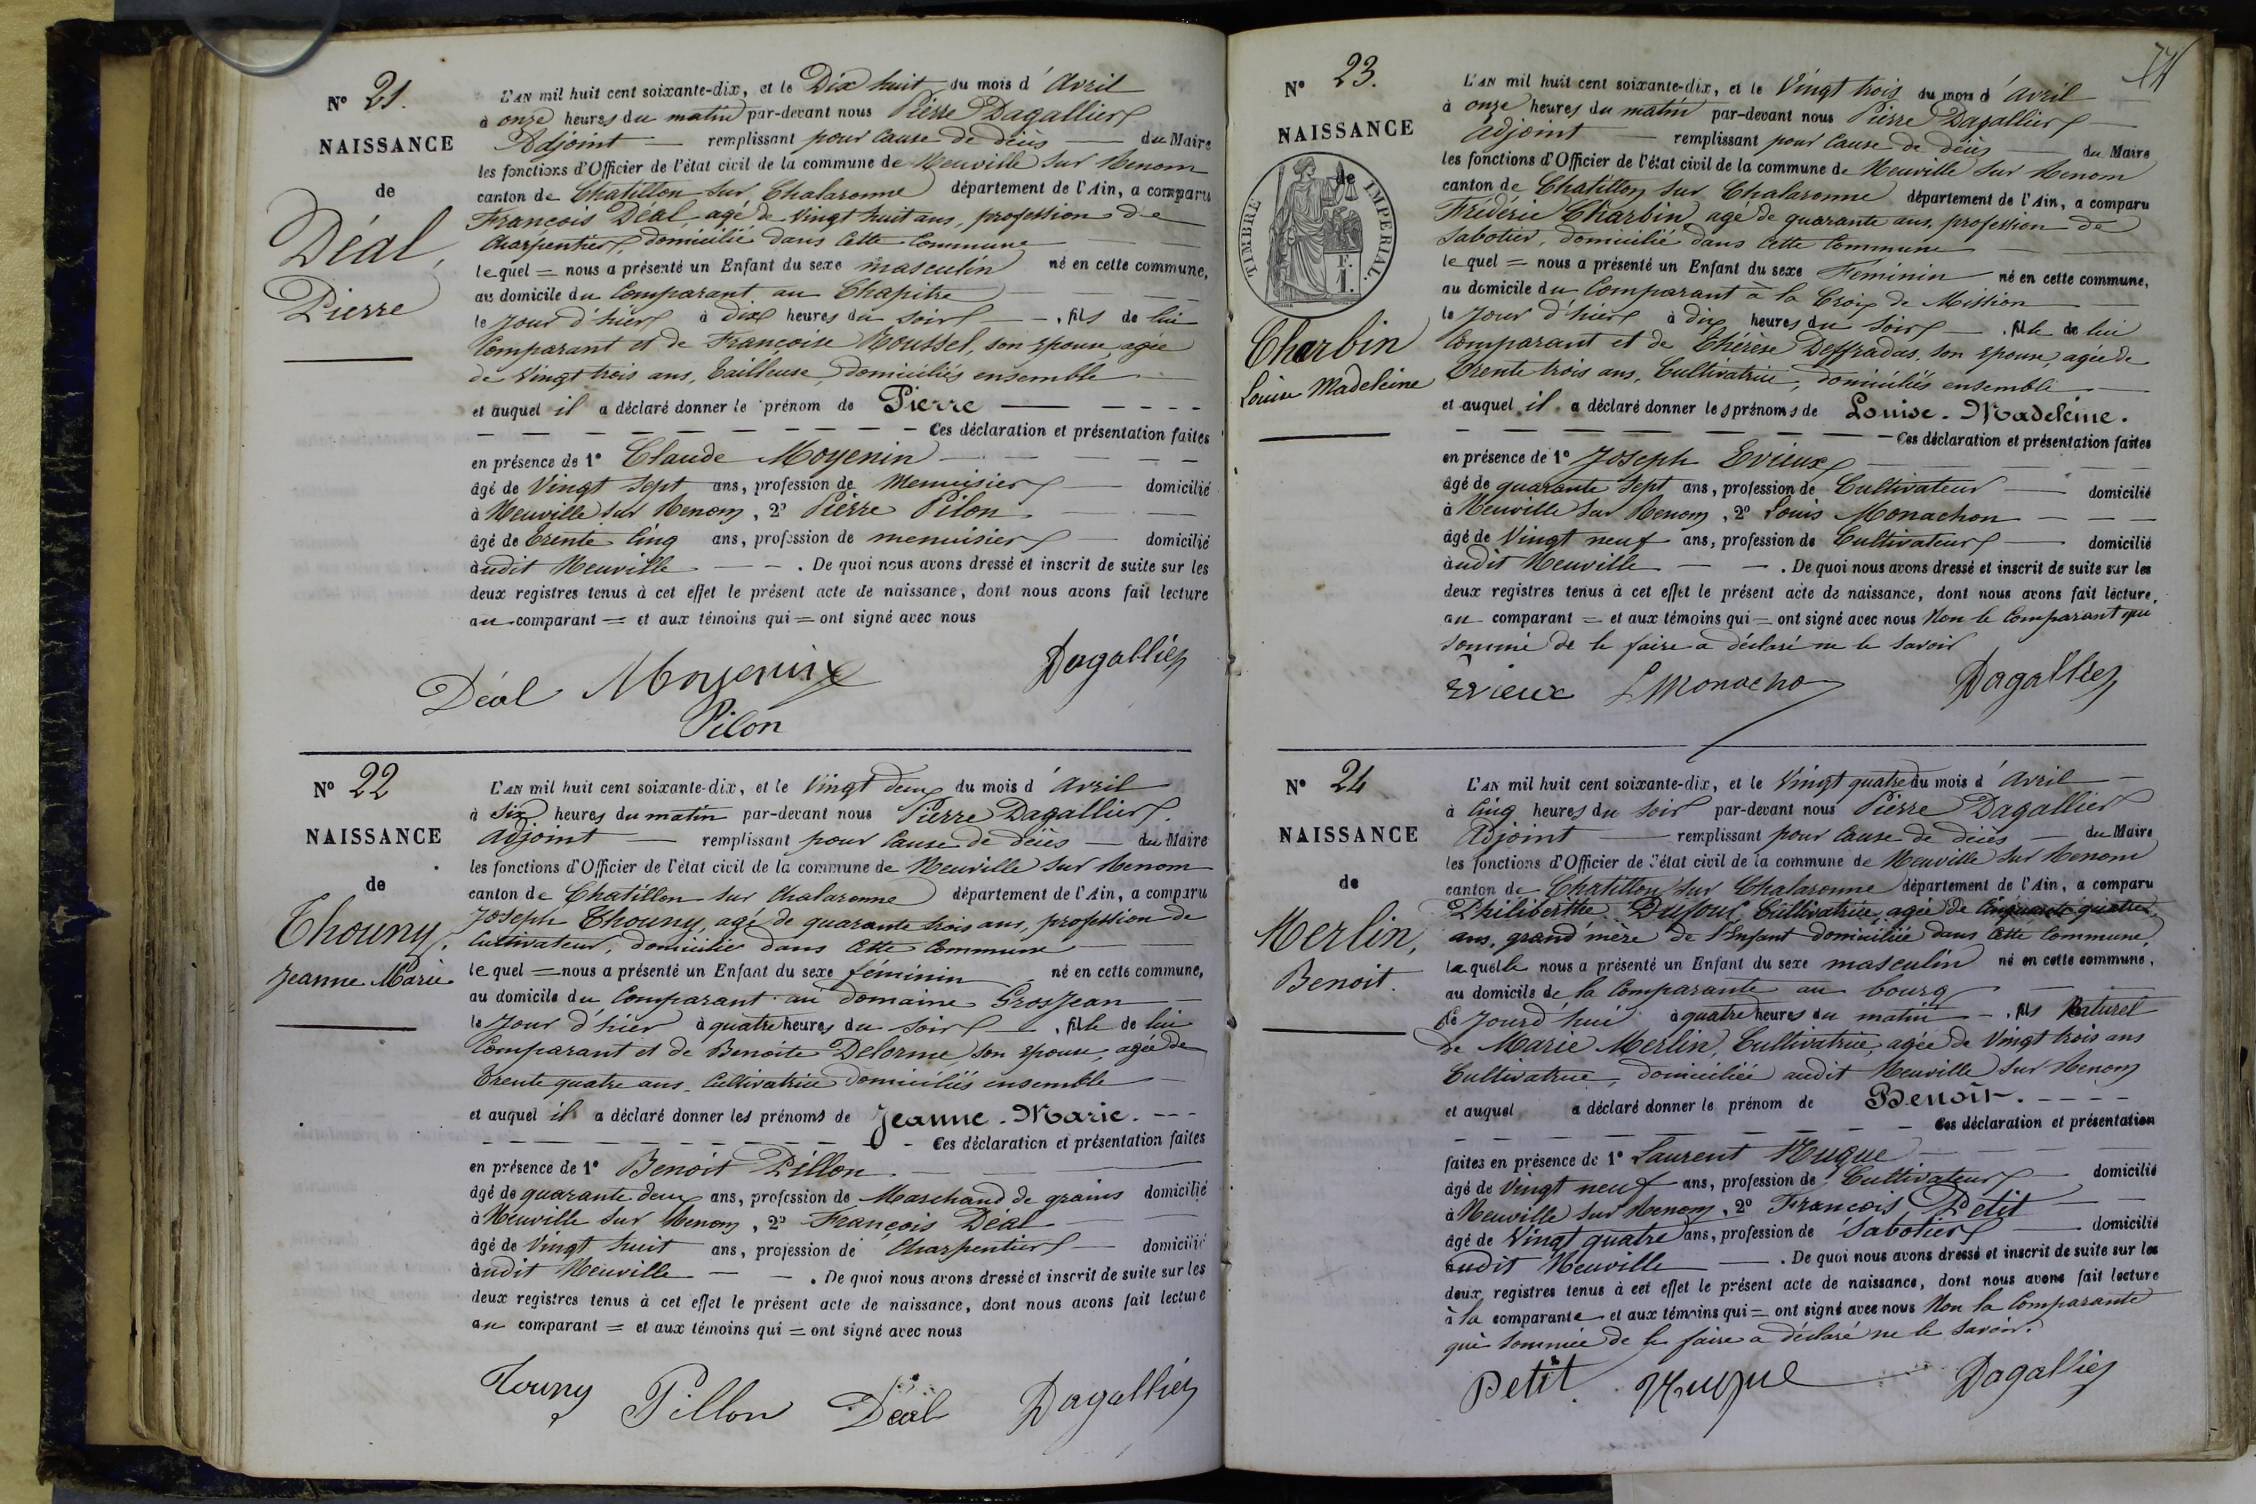 N° 21.
NAISSANCE
de
Déal,
Pierre
L'AN mil huit cent soixante-dix, et le Dix huit du mois d'Avril
à onze heures du matin par-devant nous Pierre Dagallier
Adjoint — remplissant pour cause de décès — du Maire
les fonctions d'Officier de l'état civil de la commune de Neuville sur Renom
canton de Chatillon sur Chalaronne département de l'Ain, a comparu
François Déal, agé de vingt huit ans, profession de
Charpentier, domicilié dans cette Commune
lequel = nous a présenté un Enfant du sexe masculin né en cette commune,
au domicile du Comparant au Chapitre
le jour d'hier à dix heures du soir — , fils de lui
Comparant et de Françoise Roussel, son épouse, agée
de vingt trois ans, Tailleuse, domiciliés ensemble
et auquel il a déclaré donner le prénom de Pierre — - - - -
— — — — — — — — Ces déclaration et présentation faites
en présence de 1° Claude Moyenin — — — —
âgé de vingt sept ans, profession de Menuisier — domicilié
à Neuville sur Renom, 2° Pierre Pilon — —
âgé de trente cinq ans, profession de menuisier — domicilié
audit Neuville — — . De quoi nous avons dressé et inscrit de suite sur les
deux registres tenus à cet effet le présent acte de naissance, dont nous avons fait lecture
au comparant = et aux témoins qui = ont signé avec nous
Déal Moyenin Dagallier
Pilon
N° 22
NAISSANCE
de
Thouny,
Jeanne Marie
L'AN mil huit cent soixante-dix, et le vingt deux du mois d'Avril
à six heures du matin par-devant nous Pierre Dagallier.
Adjoint — remplissant pour cause de décès — du Maire
les fonctions d'Officier de l'état civil de la commune de Neuville sur Renom
canton de Chatillon sur Chalaronne département de l'Ain, a comparu
Joseph Thouny, agé de quarante trois ans, profession de
Cultivateur, domicilié dans cette Commune
lequel = nous a présenté un Enfant du sexe féminin né en cette commune,
au domicile du Comparant au domaine Grosjean —
le jour d'hier à quatre heures du soir — , fille de lui
Comparant et de Benoite Delorme son épouse, agée de
trente quatre ans Cultivatrice domiciliés ensemble —
et auquel il a déclaré donner les prénoms de Jeanne-Marie. - - -
— — — — — — — — Ces déclaration et présentation faites
en présence de 1° Benoit Pillon
âgé de quarante deux ans, profession de Marchand de grains domicilié
à Neuville sur Renom, 2° François Déal — —
âgé de vingt huit ans, profession de Charpentier — domicilié
audit Neuville — — . De quoi nous avons dressé et inscrit de suite sur les
deux registres tenus à cet effet le présent acte de naissance, dont nous avons fait lecture
au comparant = et aux témoins qui = ont signé avec nous
Touny Pillon Déal Dagallier
N° 23.
NAISSANCE
de
TIMBRE IMPERIAL.
F.
1.
Charbin
Louise Madeleine
L'AN mil huit cent soixante-dix, et le vingt trois du mois d'avril
à onze heures du matin par-devant nous Pierre Dagallier —
Adjoint — remplissant pour cause de décès — du Maire
les fonctions d'Officier de l'état civil de la commune de Neuville sur Renom
canton de Chatillon sur Chalaronne département de l'Ain, a comparu
Frédéric Charbin agé de quarante ans, profession de
Sabotier, domicilié dans cette Commune
lequel = nous a présenté un Enfant du sexe Féminin né en cette commune,
au domicile du Comparant à la Croix de Mission
le jour d'hier à dix heures du soir — , fille de lui
Comparant et de Thérèse Deffradas, son épouse, agée de
trente trois ans, Cultivatrice, domiciliés ensemble —
et auquel il a déclaré donner les prénoms de Louise-Madeleine.
— — — — — — — — Ces déclaration et présentation faites
en présence de 1° Joseph Evieux
âgé de quarante sept ans, profession de Cultivateur — domicilié
à Neuville sur Renom, 2° Louis Monachon — — —
âgé de vingt neuf ans, profession de Cultivateur — domicilié
audit Neuville — — . De quoi nous avons dressé et inscrit de suite sur les
deux registres tenus à cet effet le présent acte de naissance, dont nous avons fait lecture,
au comparant = et aux témoins qui = ont signé avec nous Non le Comparant qui
sommé de le faire a déclaré ne le savoir
Evieux L Monachon Dagallier
N° 24
NAISSANCE
de
Merlin,
Benoit.
L'AN mil huit cent soixante-dix, et le vingt quatre du mois d'avril —
à cinq heures du soir par-devant nous Pierre Dagallier
Adjoint — remplissant pour cause de décès — du Maire
les fonctions d'Officier de l'état civil de la commune de Neuville sur Renom
canton de Chatillon sur Chalaronne département de l'Ain, a comparu
Philiberthe Dufour, Cultivatrice, agée de cinquante quatre
ans, grand'mère de l'Enfant domiciliée dans cette Commune,
laquelle nous a présenté un Enfant du sexe masculin né en cette commune,
au domicile de la Comparante au bourg
le jourd'hui à quatre heures du matin — , fils Naturel
de Marie Merlin, Cultivatrice, agée de vingt trois ans
Cultivatrice, domiciliée audit Neuville sur Renom
et auquel a déclaré donner le prénom de Benoit. - - - -
— — — — — — — — Ces déclaration et présentation
faites en présence de 1° Laurent Nugue
âgé de vingt neuf ans, profession de Cultivateur domicilié
à Neuville sur Renom, 2° François Petit —
âgé de vingt quatre ans, profession de Sabotier — domicilié
audit Neuville — . De quoi nous avons dressé et inscrit de suite sur les
deux registres tenus à cet effet le présent acte de naissance, dont nous avons fait lecture
à la comparante et aux témoins qui = ont signé avec nous Non la Comparante
qui sommée de le faire a déclaré ne le savoir.
Petit Nugue Dagallier